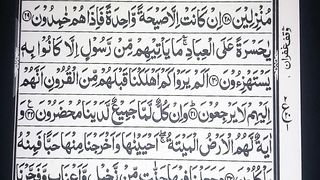 مُنْزِلِيْنَ ﴿۲۸﴾ اِنْ كَانَتْ اِلَّا صَيْحَةً وَّاحِدَةً فَاِذَا هُمْ خٰمِدُوْنَ ﴿۲۹﴾
يٰحَسْرَةً عَلَى الْعِبَادِ ۚ مَا يَاْتِيْهِمْ مِّنْ رَّسُوْلٍ اِلَّا كَانُوْا بِهٖ
يَسْتَهْزِءُوْنَ ﴿۳۰﴾ اَلَمْ يَرَوْا كَمْ اَهْلَكْنَا قَبْلَهُمْ مِّنَ الْقُرُوْنِ اَنَّهُمْ
اِلَيْهِمْ لَا يَرْجِعُوْنَ ﴿۳۱﴾ وَاِنْ كُلٌّ لَّمَّا جَمِيْعٌ لَّدَيْنَا مُحْضَرُوْنَ ﴿۳۲﴾ وَ
اٰيَةٌ لَّهُمُ الْاَرْضُ الْمَيْتَةُ ۚ اَحْيَيْنٰهَا وَاَخْرَجْنَا مِنْهَا حَبًّا فَمِنْهُ
فِيْهَا جَنّٰتٍ مِّنْ نَّخِيْلٍ وَّاَعْنَابٍ وَّفَجَّرْنَا
وقف غفران